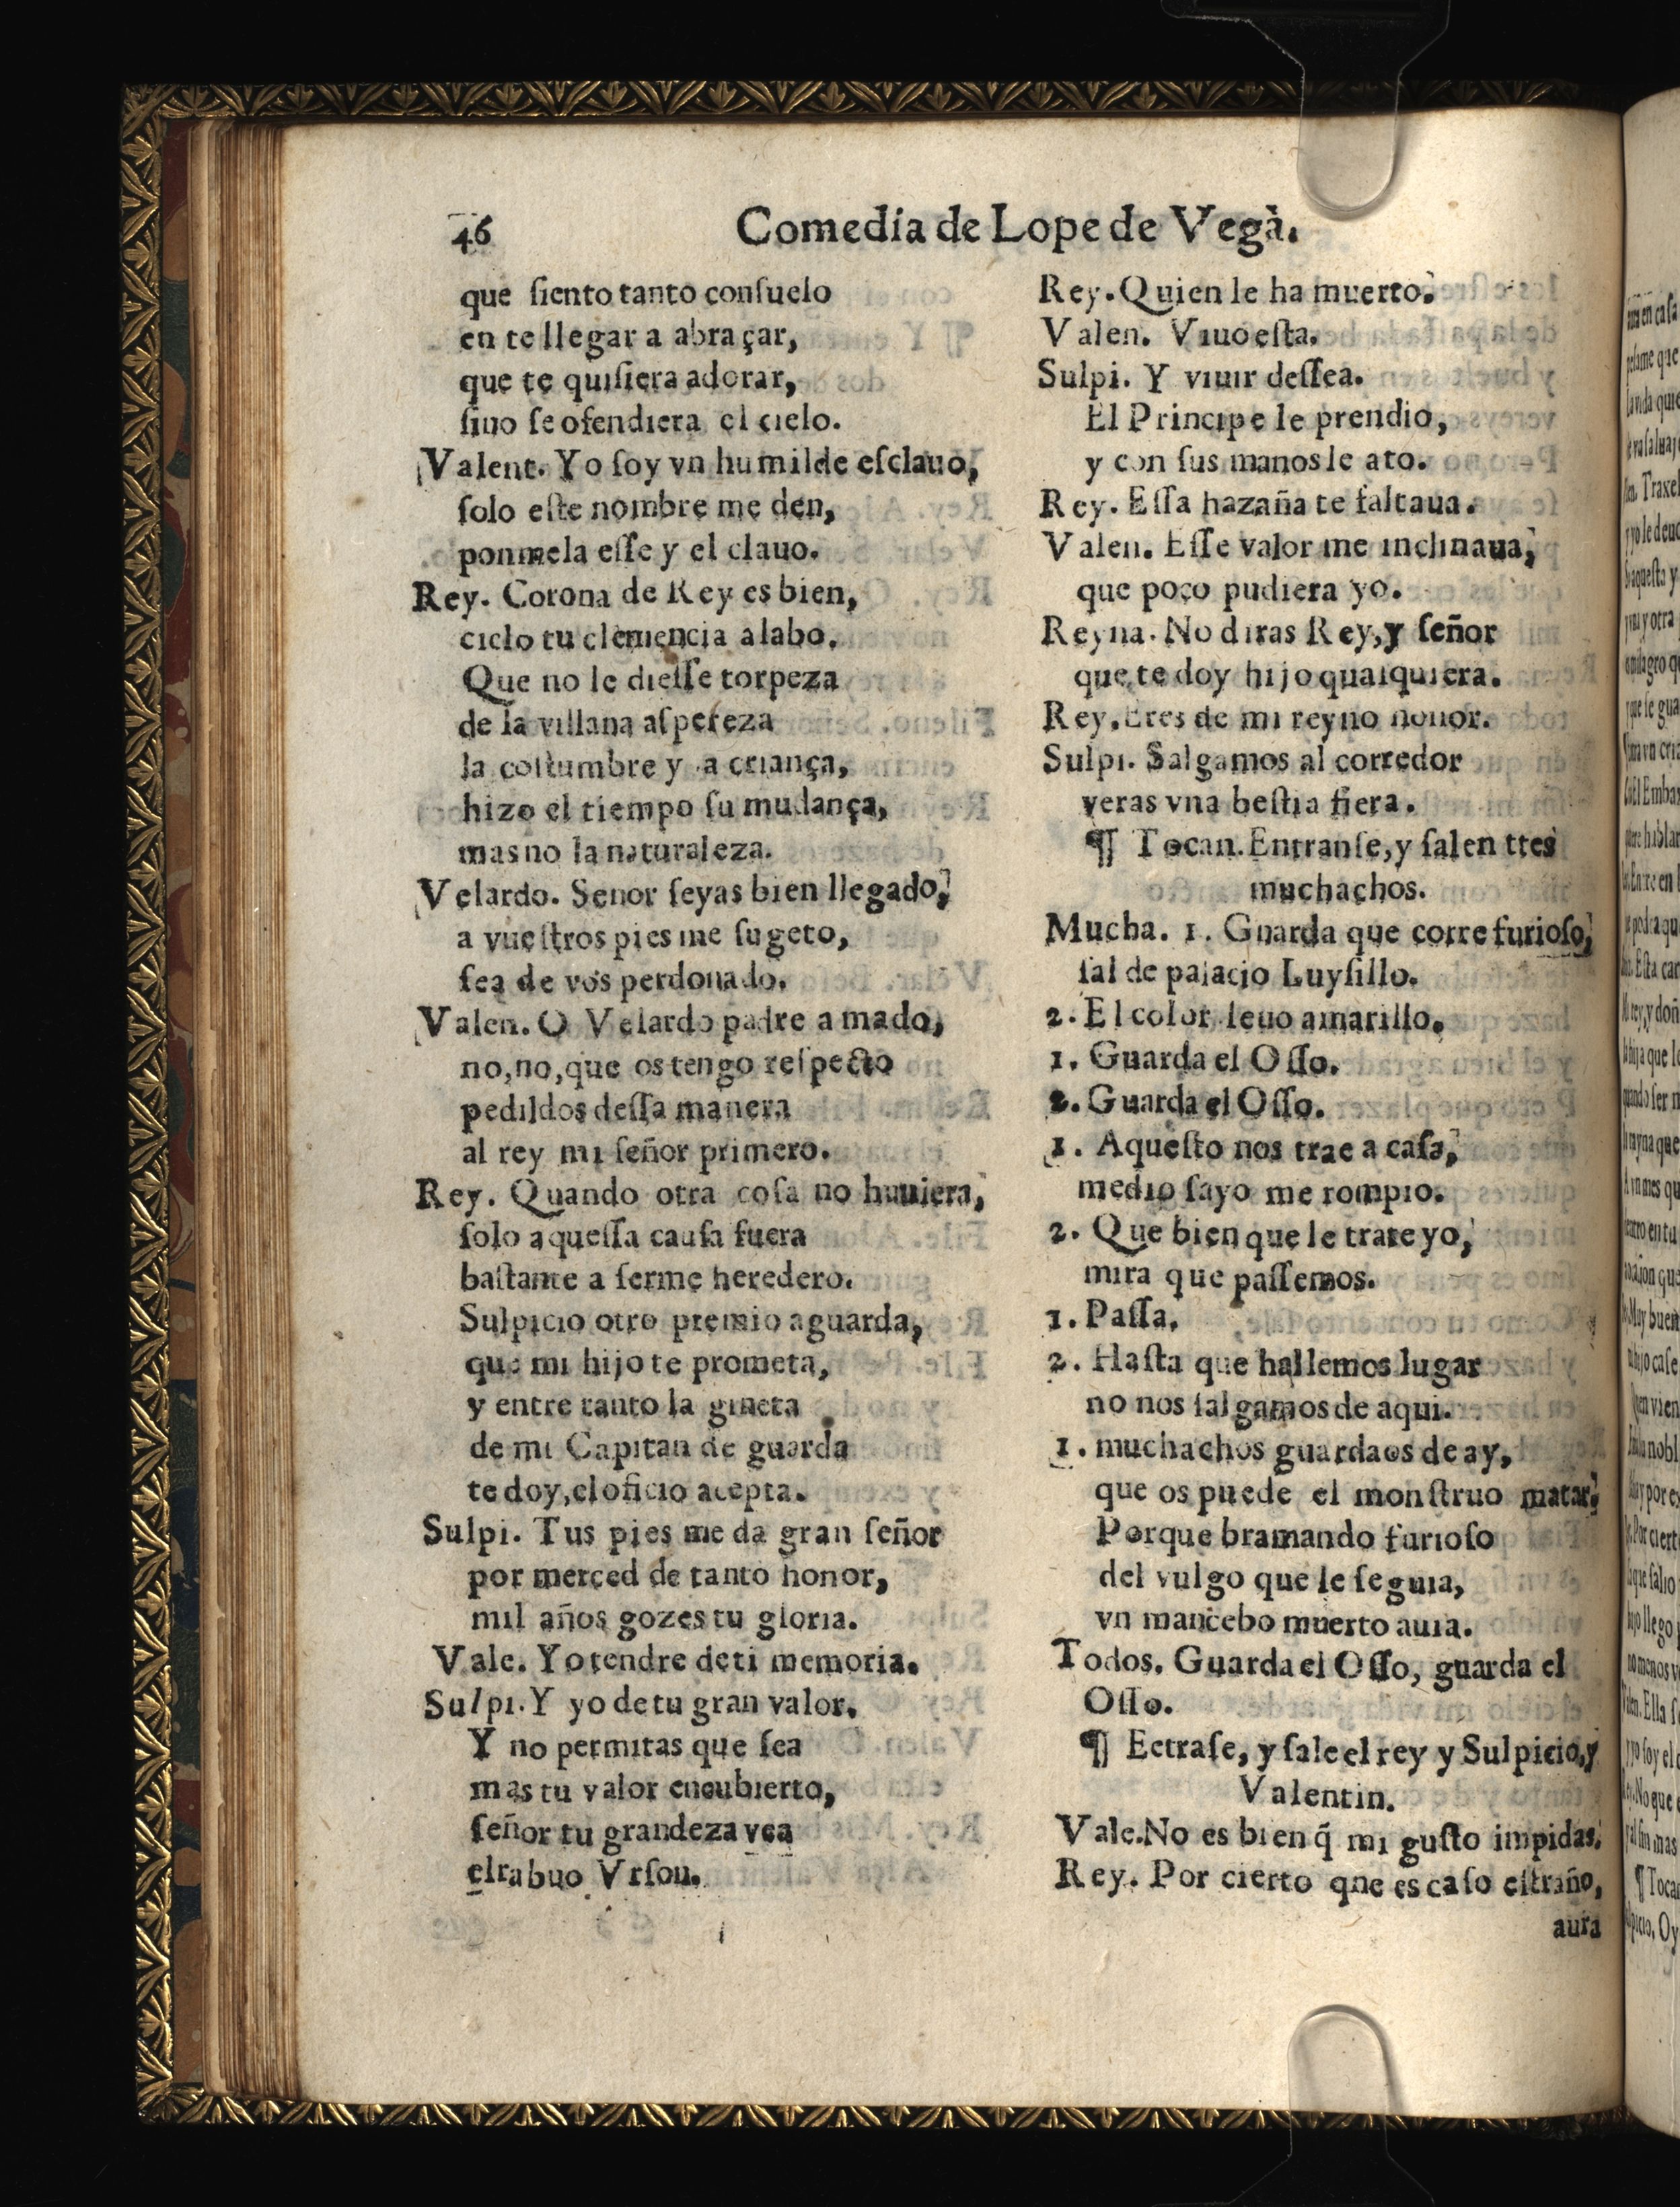 46
Comedia de Lope de Vega.
que ſiento tanto conſuelo
en te llegar a abraçar,
que te quiſiera adorar,
ſino ſe ofendiera el cielo.
Valent. Yo ſoy vn humilde eſclauo,
ſolo eſte nombre me den,
ponmela eſſe y el clauo.
Rey. Corona de Rey es bien,
cielo tu clemencia alabo.
Que no le dieſſe torpeza
de la villana aſpereza
la coſtumbre y la criança,
hizo el tiempo ſu mudança,
mas no la naturaleza.
Velardo. Senor ſeyas bien llegado,
a vueſtros pies me ſugeto,
ſea de vos perdonado.
Valen. O Velardo padre amado,
no, no, que os tengo reſpecto
pedildos deſſa manera
al rey mi ſeñor primero.
Rey. Quando otra coſa no huuiera,
ſolo aqueſſa cauſa fuera
baſtante a ſerme heredero.
Sulpicio otro premio aguarda,
que mi hijo te prometa,
y entre tanto la gineta
de mi Capitan de guarda
te doy, el oficio acepta.
Sulpi. Tus pies me da gran ſeñor
por merced de tanto honor,
mil años gozes tu gloria.
Vale. Yo tendre de ti memoria.
Sulpi. Y yo de tu gran valor.
Y no permitas que ſea
mas tu valor encubierto,
ſeñor tu grandeza vea
el rabuo Vrſou.
Rey. Quien le ha muerto?
Valen. Viuo eſta.
Sulpi. Y viuir deſſea.
El Principe le prendio,
y con ſus manos le ato.
Rey. Eſſa hazaña te faltaua.
Valen. Eſſe valor me inclinaua,
que poco pudiera yo.
Reyna. No diras Rey, y ſeñor
que te doy hijo qualquiera.
Rey. Eres de mi reyno honor.
Sulpi. Salgamos al corredor
veras vna beſtia fiera.
¶ Tocan. Entranſe, y ſalen ttes
muchachos.
Mucha. 1. Gnarda que corre furioſo,
ſal de palacio Luyſillo.
2. El color leuo amarillo.
1. Guarda el Oſſo.
2. Guarda el Oſſo.
1. Aqueſto nos trae a caſa,
medio ſayo me rompio.
2. Que bien que le trate yo,
mira que paſſemos.
1. Paſſa.
2. Haſta que hallemos lugar
no nos ſalgamos de aqui.
1. muchachos guardaos de ay,
que os puede el monſtruo matar,
Porque bramando furioſo
del vulgo que le ſeguia,
vn mancebo muerto auia.
Todos. Guarda el Oſſo, guarda el
Oſſo.
¶ Ectraſe, y ſale el rey y Sulpicio, y
Valentin.
Vale. No es bien q̃ mi guſto impidas.
Rey. Por cierto qne es caſo eſtraño,
aura